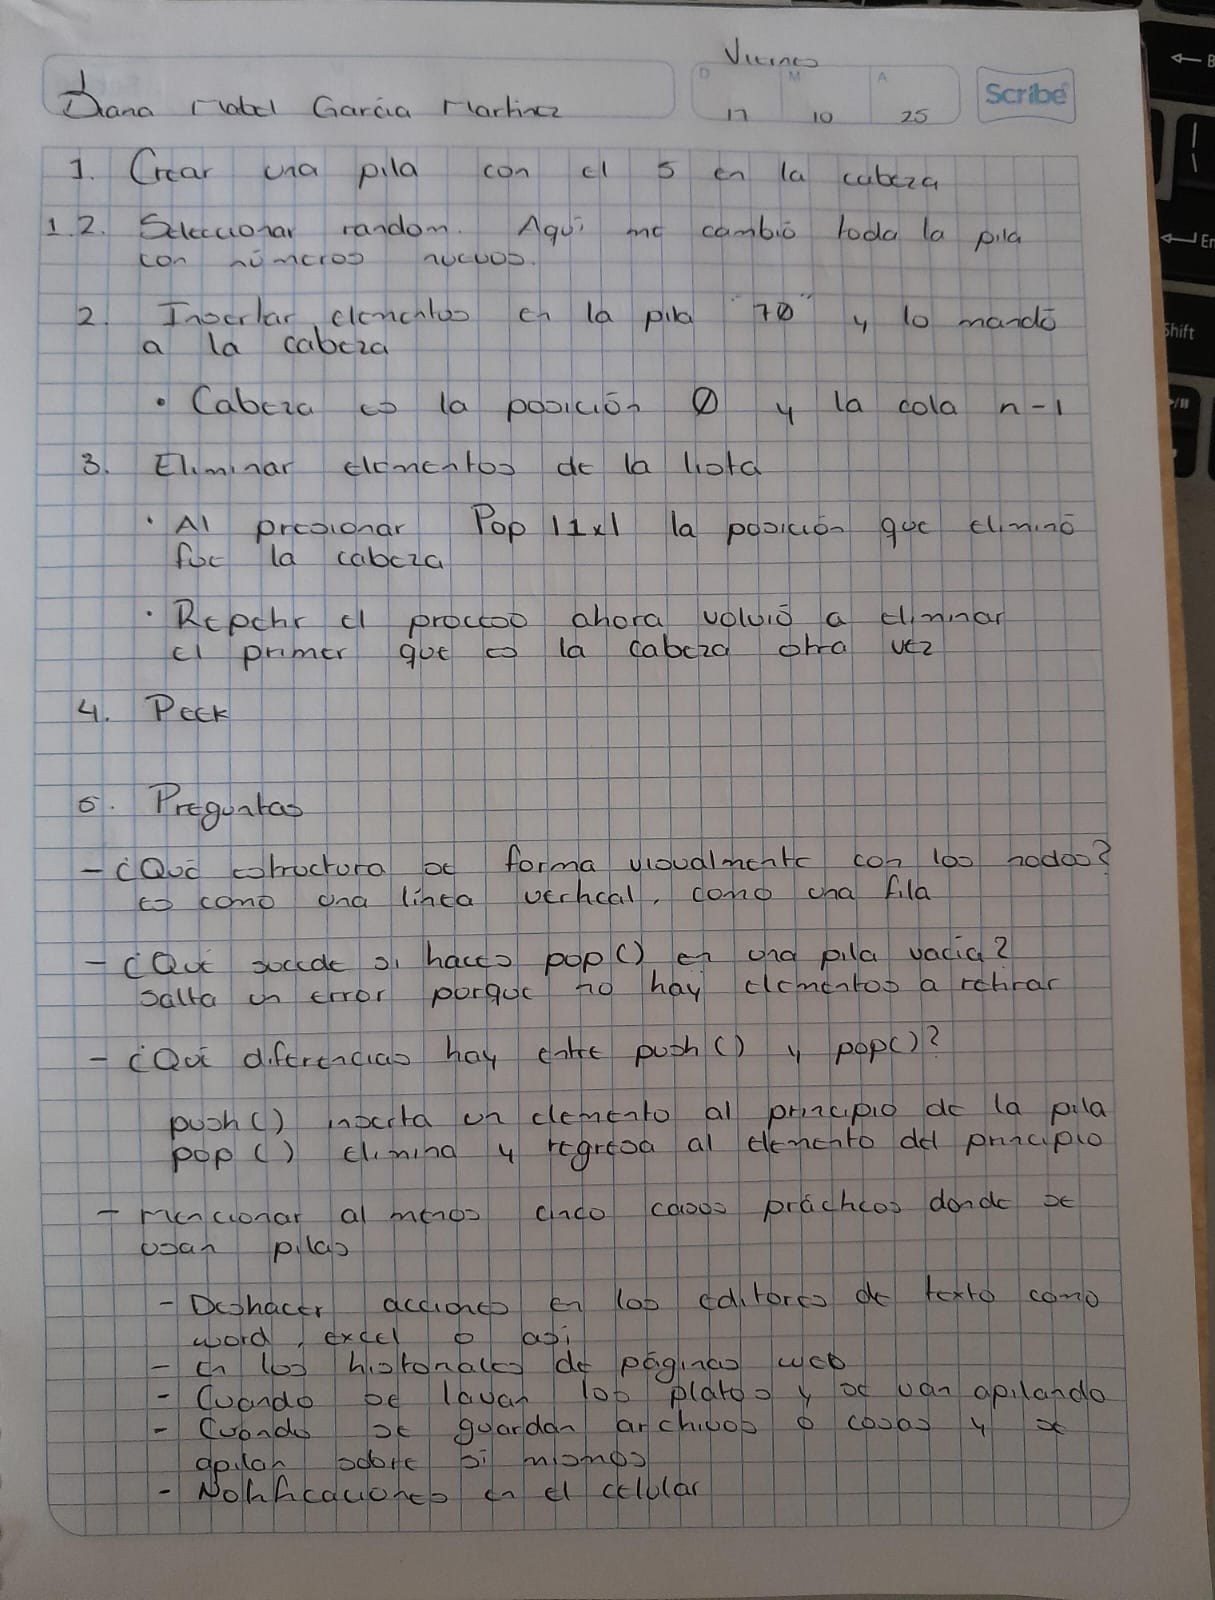 Viernes
D M A
Diana Mabel García Martínez 17 10 25 Scribe
1. Crear una pila con el 5 en la cabeza
1.2. Seleccionar random. Aquí me cambió toda la pila
con números nuevos.
2. Insertar elementos en la pila "70" y lo mandó
a la cabeza
• Cabeza es la posición 0 y la cola n-1
3. Eliminar elementos de la lista
• Al presionar Pop |1x| la posición que eliminó
fue la cabeza
• Repetir el proceso ahora volvió a eliminar
el primer que es la cabeza otra vez
4. Peek
5. Preguntas
- ¿Qué estructura se forma visualmente con los nodos?
es como una línea vertical, como una fila
- ¿Qué sucede si haces pop() en una pila vacía?
salta un error porque no hay elementos a retirar
- ¿Qué diferencias hay entre push() y pop()?
push() inserta un elemento al principio de la pila
pop() elimina y regresa al elemento del principio
- mencionar al menos cinco casos prácticos donde se
usan pilas
- Deshacer acciones en los editores de texto como
word, excel o así
- en los historiales de páginas web
- Cuando se lavan los platos y se van apilando
- Cuando se guardan archivos o cosas y se
apilan sobre sí mismos
- Notificaciones en el celular
← B
En
Shift